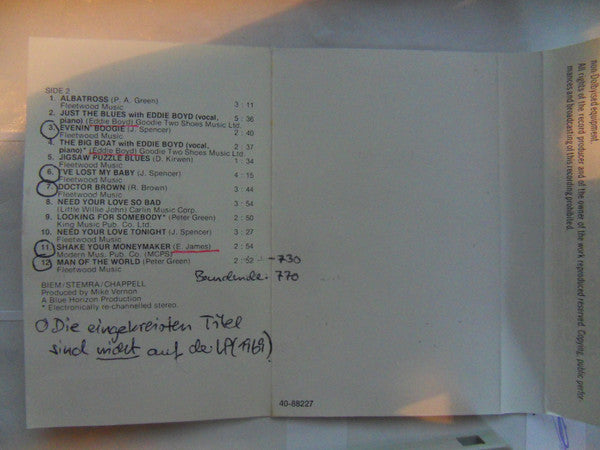 SIDE 2
1. ALBATROSS (P. A. Green)
Fleetwood Music 3 : 11
2. JUST THE BLUES with EDDIE BOYD (vocal,
piano) (Eddie Boyd) Goodie Two Shoes Music Ltd. 5 : 36
3. EVENIN' BOOGIE (J. Spencer) 2 : 40
Fleetwood Music
4. THE BIG BOAT with EDDIE BOYD (vocal,
piano)* (Eddie Boyd) Goodie Two Shoes Music Ltd. 2 : 37
5. JIGSAW PUZZLE BLUES (D. Kirwen) 1 : 34
Fleetwood Music
6. I'VE LOST MY BABY (J. Spencer) 4 : 15
Fleetwood Music
7. DOCTOR BROWN (R. Brown) 3 : 44
Fleetwood Music
8. NEED YOUR LOVE SO BAD 3 : 54
(Little Willie John) Carlin Music Corp.
9. LOOKING FOR SOMEBODY* (Peter Green) 2 : 50
King Music Pub. Co. Ltd.
10. NEED YOUR LOVE TONIGHT (J. Spencer) 3 : 27
Fleetwood Music
11. SHAKE YOUR MONEYMAKER (E. James) 2 : 54
Modern Mus. Pub. Co. (MCPS)
12. MAN OF THE WORLD (Peter Green) 2 : 52 - 730
Fleetwood Music
Bandende: 770
BIEM/STEMRA/CHAPPELL
Produced by Mike Vernon
A Blue Horizon Production
* Electronically re-channelled stereo.
O Die eingekreisten Titel
sind nicht auf de LP (1969)
40-88227
non-Dolbysed equipment.
All rights of the record producer and of the owner of the work reproduced reserved. Copying, public perfor-
mances and broadcasting of this recording prohibited.